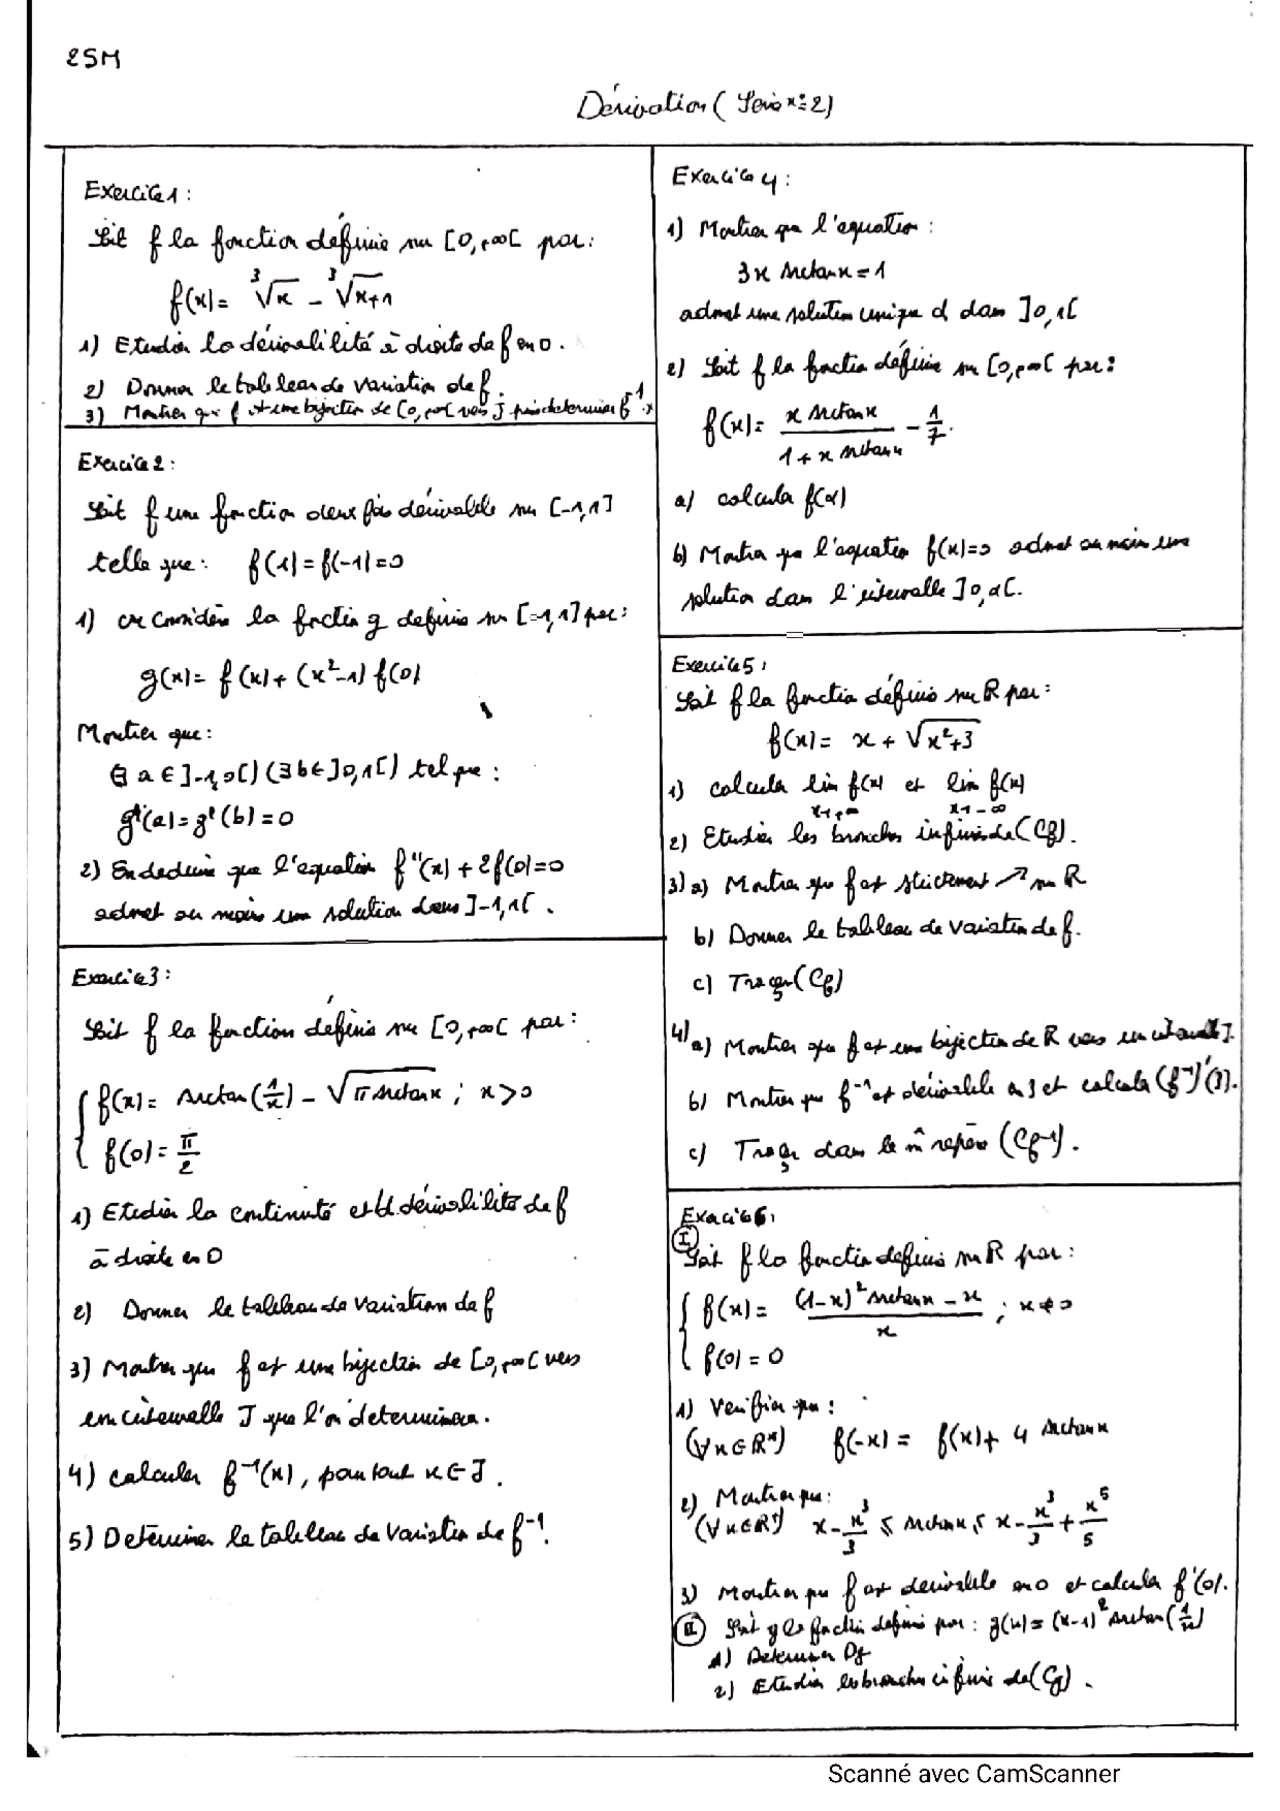 2SM
Dérivation (Série n°: 2)
Exercice 1 :
Soit f la fonction définie sur [0,+∞[ par :
f(x) = ∛x - ∛x+1
1) Etudier la dérivabilité à droite de f en 0.
2) Donner le tableau de variation de f.
3) Montrer que f est une bijection de [0,+∞[ vers J puis déterminer f⁻¹
Exercice 2 :
Soit f une fonction deux fois dérivable sur [-1,1]
telle que : f(1) = f(-1) = 0
1) on considère la fonction g définie sur [-1,1] par :
g(x) = f(x) + (x²-1) f(0)
Montrer que :
(∃ a ∈ ]-1,0[) (∃ b ∈ ]0,1[) tel que :
g'(a) = g'(b) = 0
2) En déduire que l'équation f''(x) + 2f(0) = 0
admet au moins une solution dans ]-1,1[.
Exercice 3 :
Soit f la fonction définie sur [0,+∞[ par :
f(x) = Arctan(1/x) - √(π Arctan x) ; x > 0
f(0) = π/2
1) Etudier la continuité et la dérivabilité de f
à droite en 0
2) Donner le tableau de variation de f
3) Montrer que f est une bijection de [0,+∞[ vers
un intervalle J que l'on déterminera.
4) calculer f⁻¹(x), pour tout x ∈ J.
5) Déterminer le tableau de variation de f⁻¹.
Exercice 4 :
1) Montrer que l'equation :
3x Arctan x = 1
admet une solution unique α dans ]0,1[
2) Soit f la fonction définie sur [0,+∞[ par :
f(x) = (x Arctan x)/(1 + x Arctan x) - 1/7.
a) calculer f(α)
b) Montrer que l'equation f(x)=0 admet au moins une
solution dans l'intervalle ]0,α[.
Exercice 5 :
Soit f la fonction définie sur ℝ par :
f(x) = x + √(x²+3)
1) calculer lim f(x) et lim f(x)
x→+∞ x→-∞
2) Etudier les branches infinies de (Cf).
3) a) Montrer que f est strictement ↗ sur ℝ
b) Donner le tableau de variation de f.
c) Tracer (Cf)
4) a) Montrer que f est une bijection de ℝ vers un intervalle J.
b) Montrer que f⁻¹ est dérivable en 3 et calculer (f⁻¹)'(3).
c) Tracer dans le m̂ repère (Cf⁻¹).
Exercice 6 :
I
Soit f la fonction définie sur ℝ par :
f(x) = ((1-x)² Arctan x - x)/x ; x ≠ 0
f(0) = 0
1) Verifier que :
(∀x ∈ ℝ*) f(-x) = f(x) + 4 Arctan x
2) Montrer que :
(∀x ∈ ℝ⁺) x - x³/3 ≤ Arctan x ≤ x - x³/3 + x⁵/5
3) Montrer que f est dérivable en 0 et calculer f'(0).
II Soit g la fonction définie par : g(x) = (x-1)² Arctan(1/x)
1) Déterminer Dg
2) Etudier les branches infinies de (Cg).
Scanné avec CamScanner